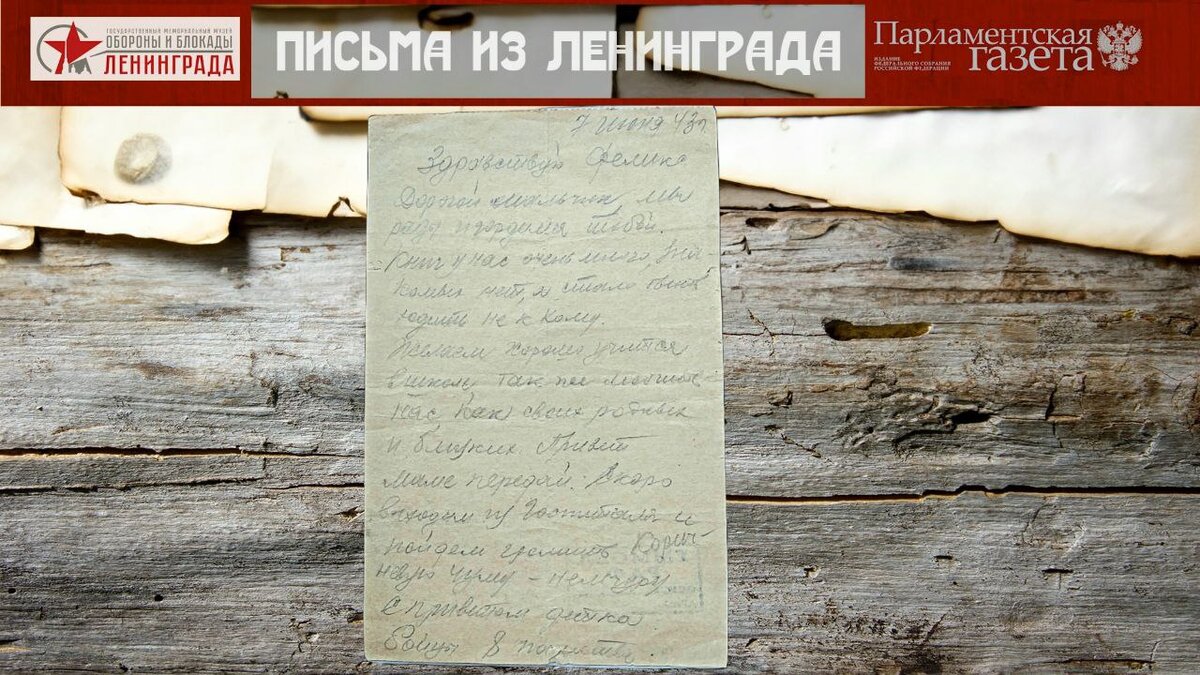 ГОСУДАРСТВЕННЫЙ МЕМОРИАЛЬНЫЙ МУЗЕЙ
ОБОРОНЫ И БЛОКАДЫ
ЛЕНИНГРАДА
ПИСЬМА ИЗ ЛЕНИНГРАДА
Парламентская
газета
ИЗДАНИЕ
ФЕДЕРАЛЬНОГО СОБРАНИЯ
РОССИЙСКОЙ ФЕДЕРАЦИИ
7 июня 43г
Здравствуй Феликс
Дорогой мальчик, мы
гордимся тобой.
Книг у нас очень много, Зна-
комых нет, и стало быть
ходить не к кому.
Желаем хорошо учится
в школу так же
нас как своих родных
и близких Привет
маме передай. Скоро
выходим из Госпиталя и
пойдем громить Корич-
невую чуму - немчуру
С приветом детка.
Бойцы 8 палаты.